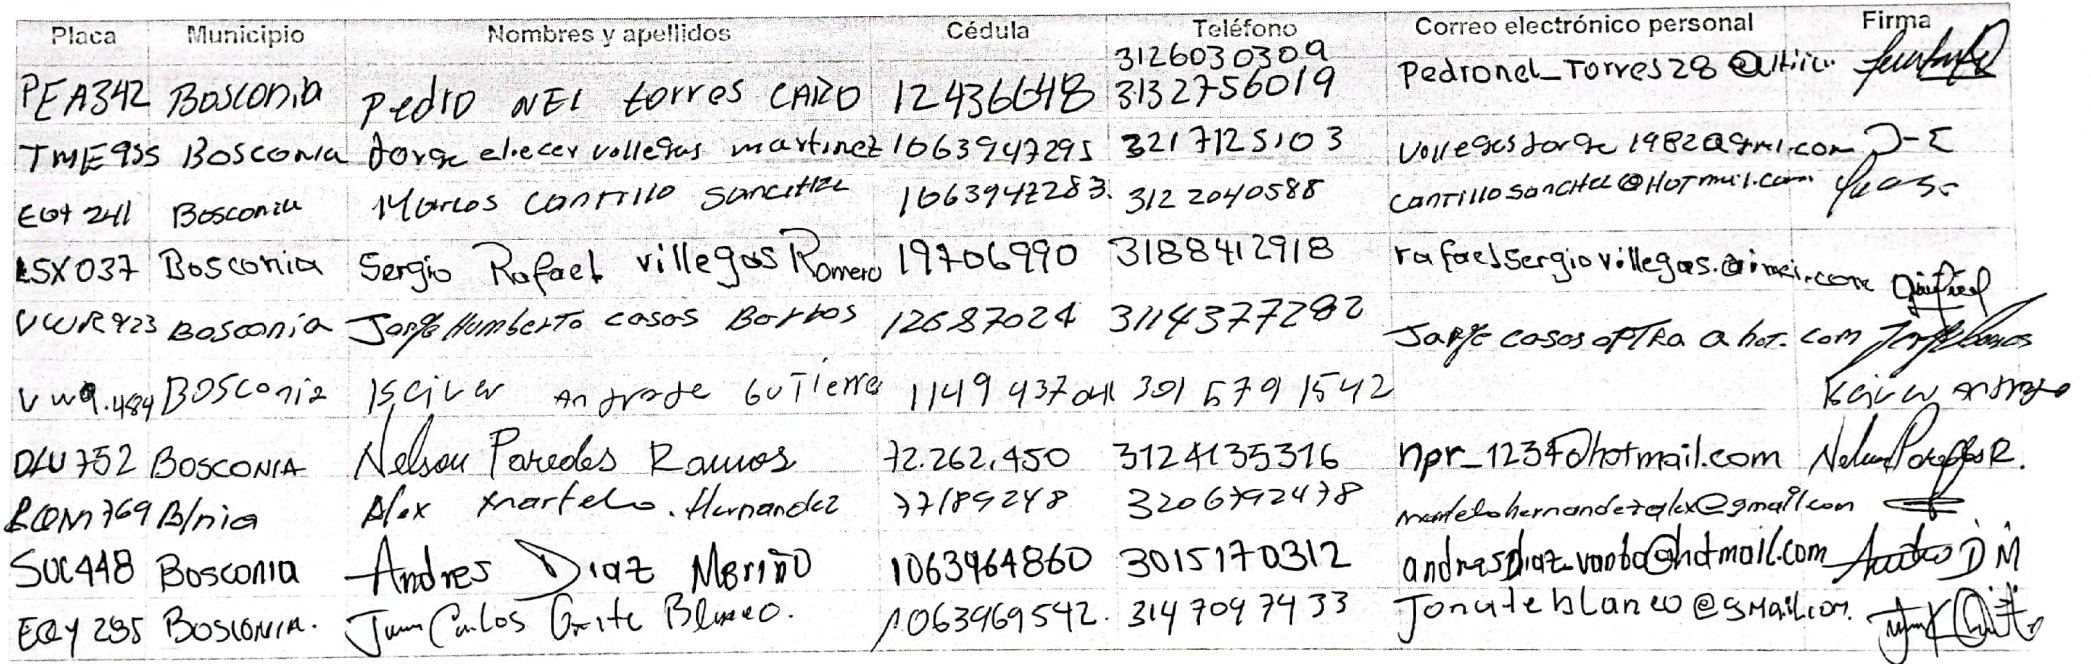 Placa Municipio Nombres y apellidos Cédula Teléfono Correo electrónico personal Firma
3126030309
PEA342 Bosconia Pedro NEL torres CARO 12436648 3132756019 Pedronel_Torres28
TME955 Bosconia Jorge eliecer vollegas martinez 1063947295 3217125103 vollegasJorge1982@gmi.com J-E
241 Bosconia Marcos Cantillo Sanchez 1063942283. 3122040588 cantillosanchez@Hotmail.com
LSX037 Bosconia Sergio Rafael villegas Romero 19706990 3188412918
VWR923 Bosconia Jorge Humberto casas Barros 12687024 3114377282 Jorge casas OPTRA @ hot. com
484 BOSconia Isciver Andrade GuTierre 1149437041 301 5791542
752 BOSCONIA Nelson Paredes Ramos 72.262.450 3124135316 npr_1234@hotmail.com Nelson Paredes R.
769 B/nia Alex martelo. Hernandez 77189248 3206792478 martelohernandezalex@gmail.com
SUC448 Bosconia Andres Diaz Meriño 1063964860 3015170312 D M
EQY 285 BOSCONIA. Juan Carlos Oñate Blanco. 1063969542. 3147097433 Jonateblanco@gmail.com.